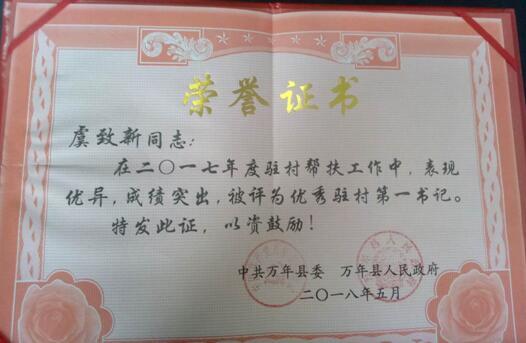 荣誉证书
虞致新同志:
在二〇一七年度驻村帮扶工作中,表现
优异,成绩突出,被评为优秀驻村第一书记。
特发此证,以资鼓励!
中共万年县委 万年县人民政府
二〇一八年五月